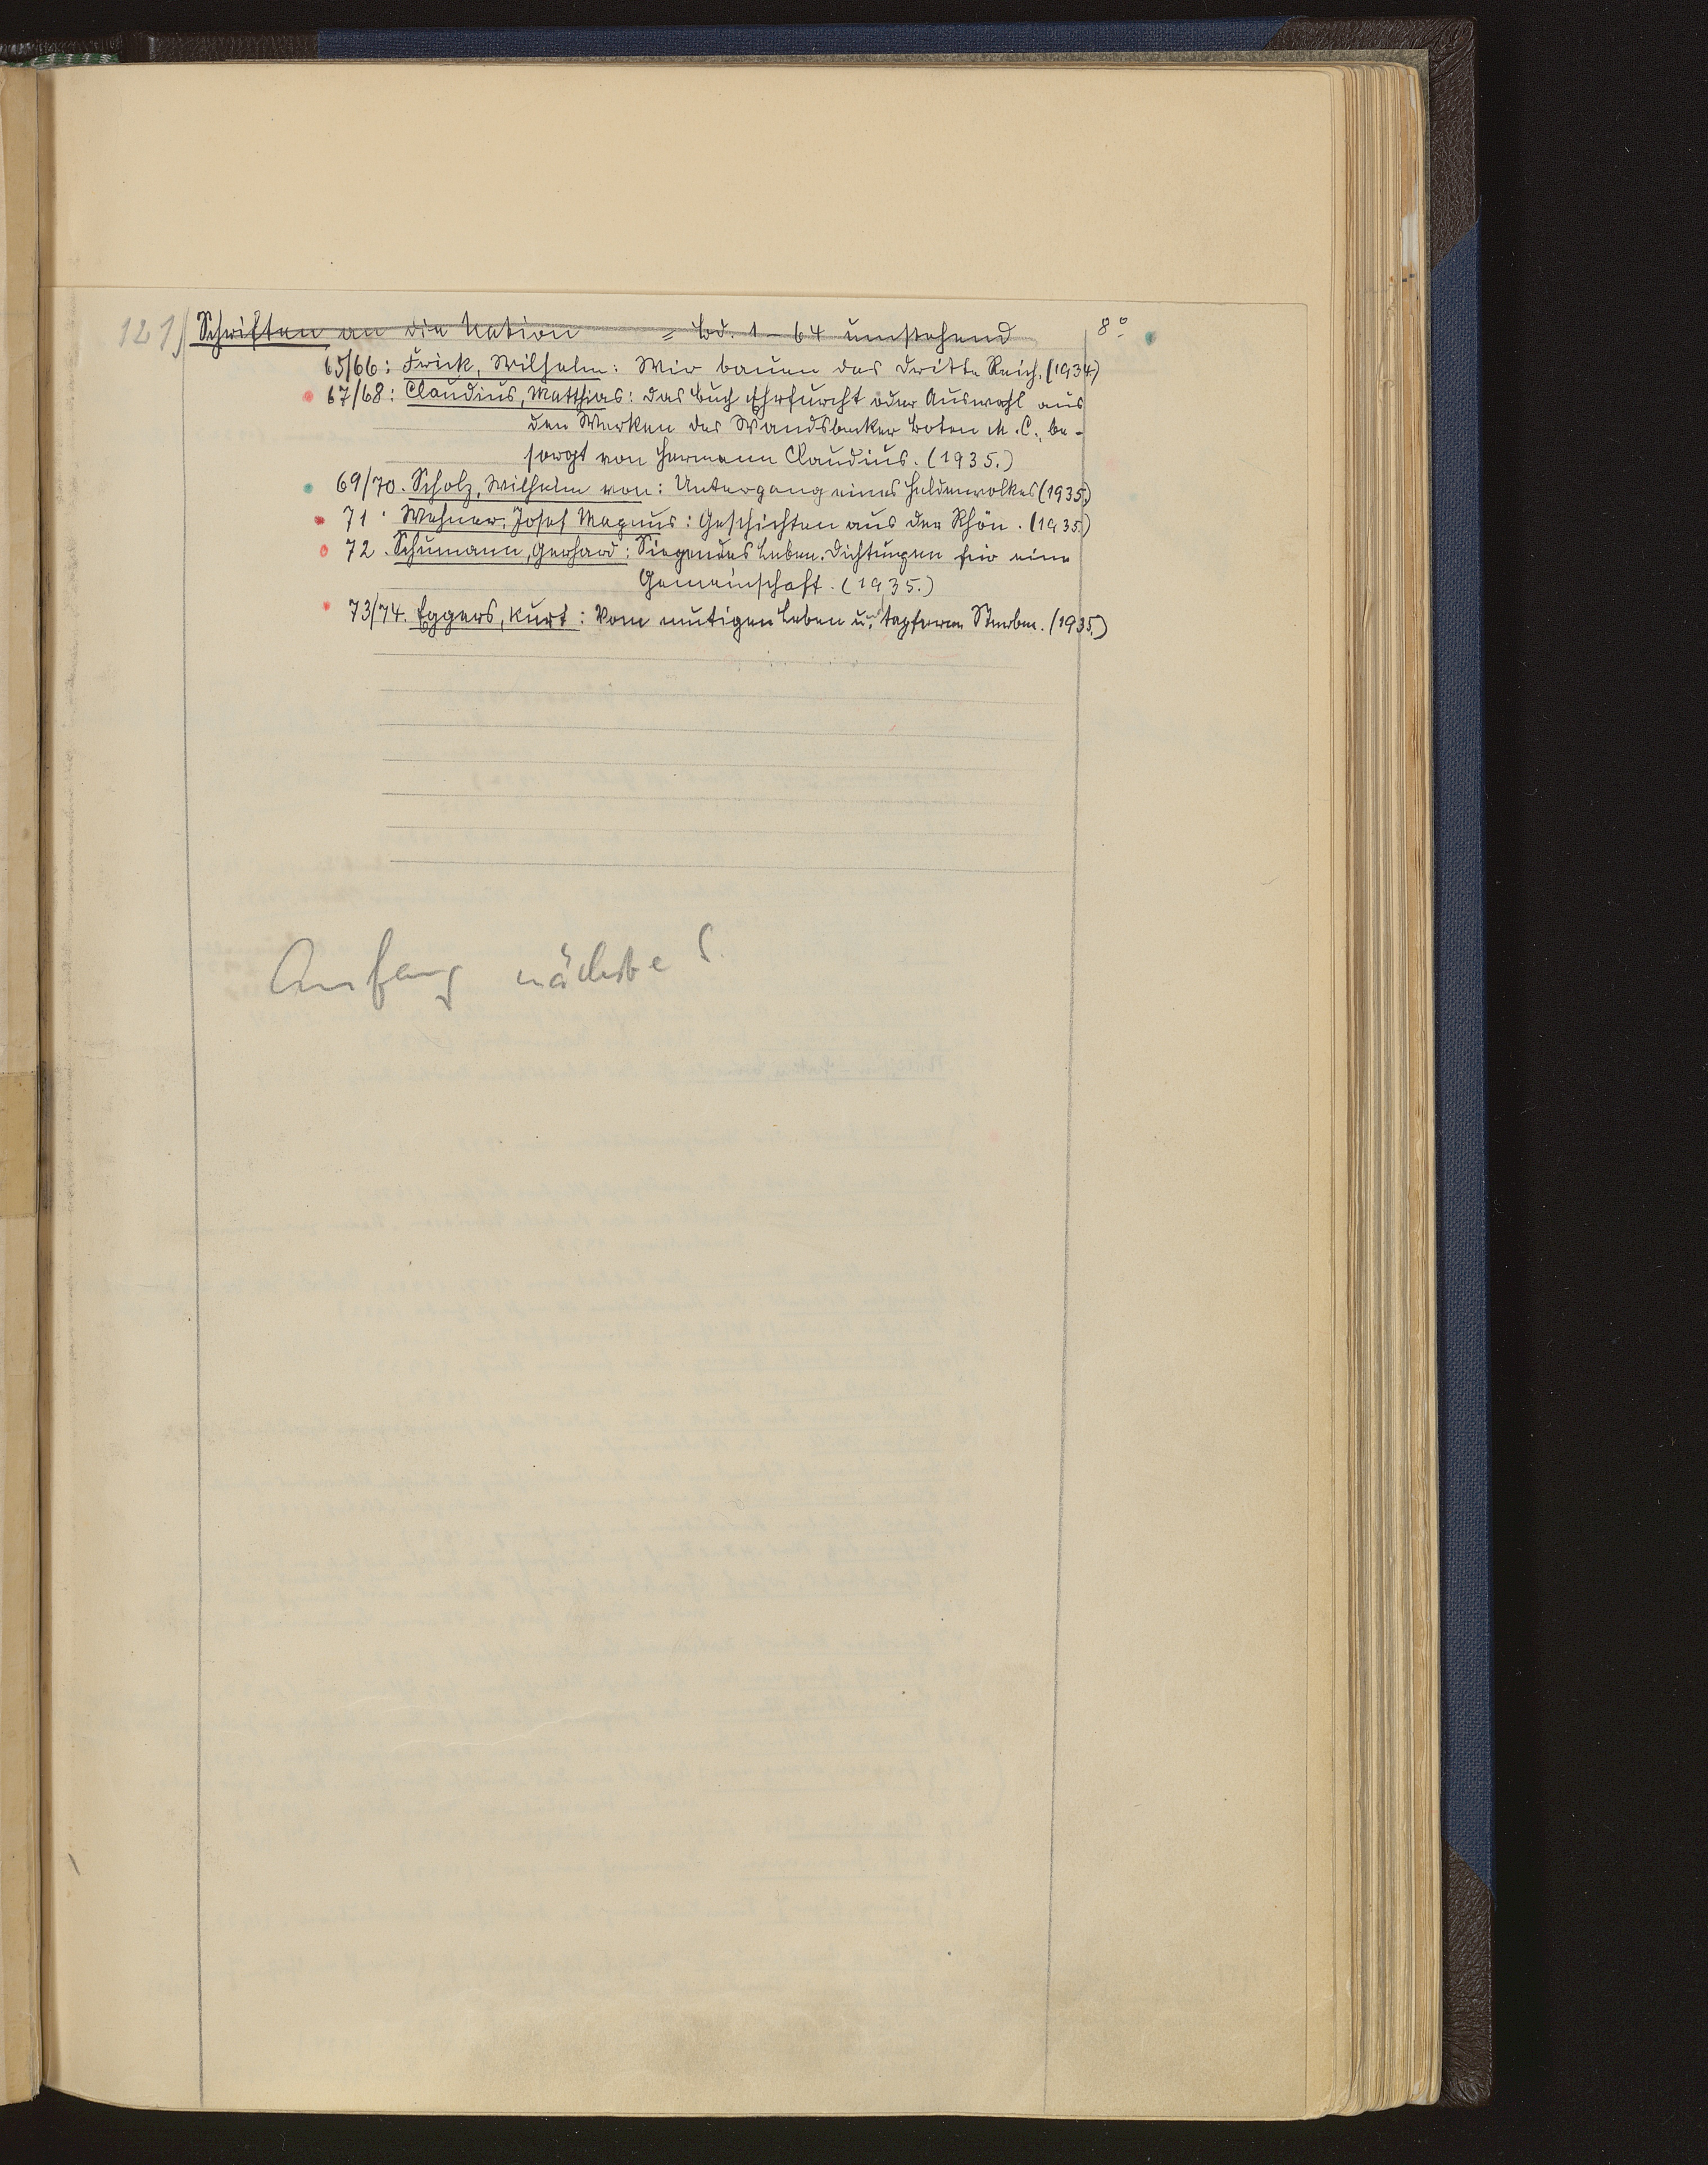 121) Schriften an die Nation = Bd. 1–64 umstehend 8°
65/66: Frick, Wilhelm: Wir bauen das Dritte Reich. (1934.)
67/68: Claudius, Matthias: Das Buch Ehrfurcht oder Auswahl aus
den Werken des Wandsbecker Boten M. C., be-
sorgt von Hermann Claudius. (1935.)
69/70. Scholz, Wilhelm von: Untergang eines Heldenvolkes (1935.)
71. Wehner, Josef Magnus: Geschichten aus der Rhön. (1935.)
72. Schumann, Gerhard: Siegendes Leben. Dichtungen für eine
Gemeinschaft. (1935.)
73/74. Eggers, Kurt: Vom mutigen Leben u. tapferem Sterben. (1935.)
Anfang nächste S.